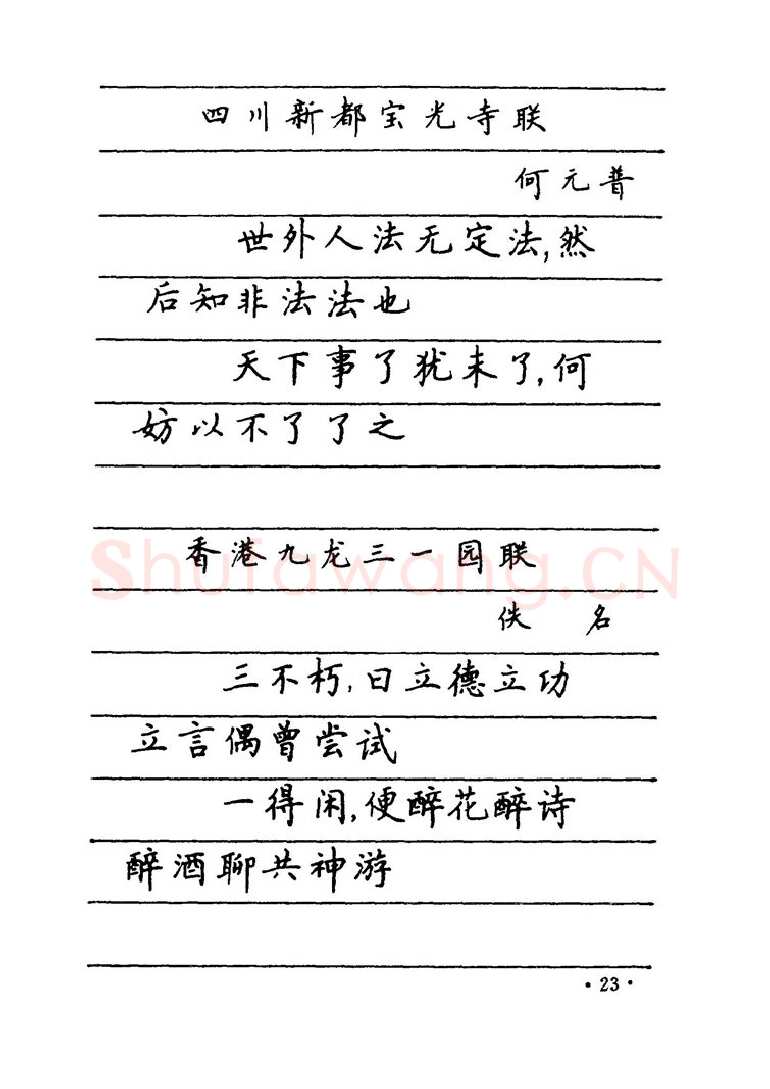 四川新都宝光寺联
何元普
世外人法无定法,然
后知非法法也
天下事了犹未了,何
妨以不了了之
香港九龙三一园联
Shufawang.CN
佚 名
三不朽,曰立德立功
立言偶曾尝试
一得闲,便醉花醉诗
醉酒聊共神游
·23·